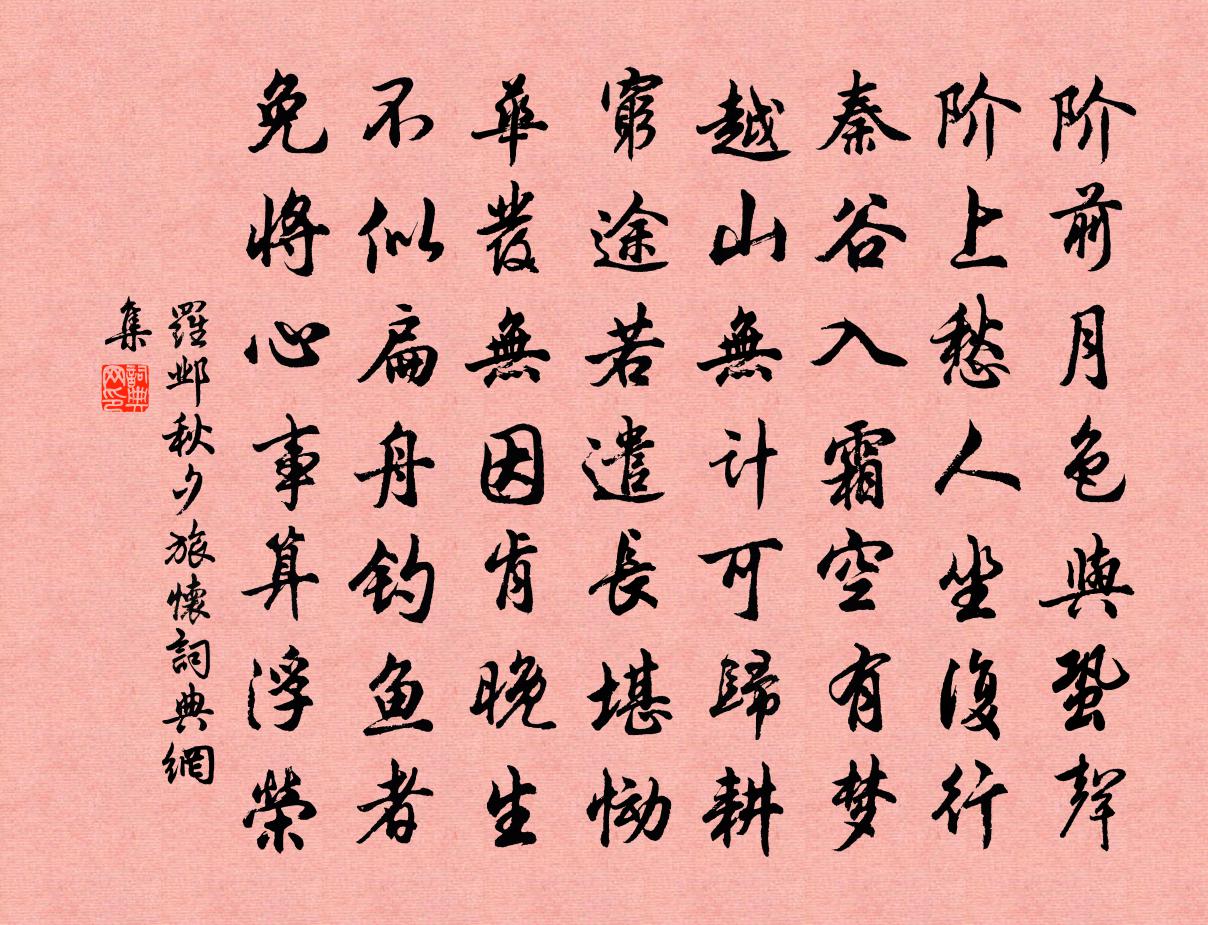 阶前月色與蛩聲
阶上愁人坐復行
秦谷入霜空有梦
越山無计可歸耕
窮途若遣長堪恸
華發無因肯晚生
不似扁舟钓鱼者
免将心事算浮榮
羅邺秋夕旅懷詞典網
集
詞典
网印